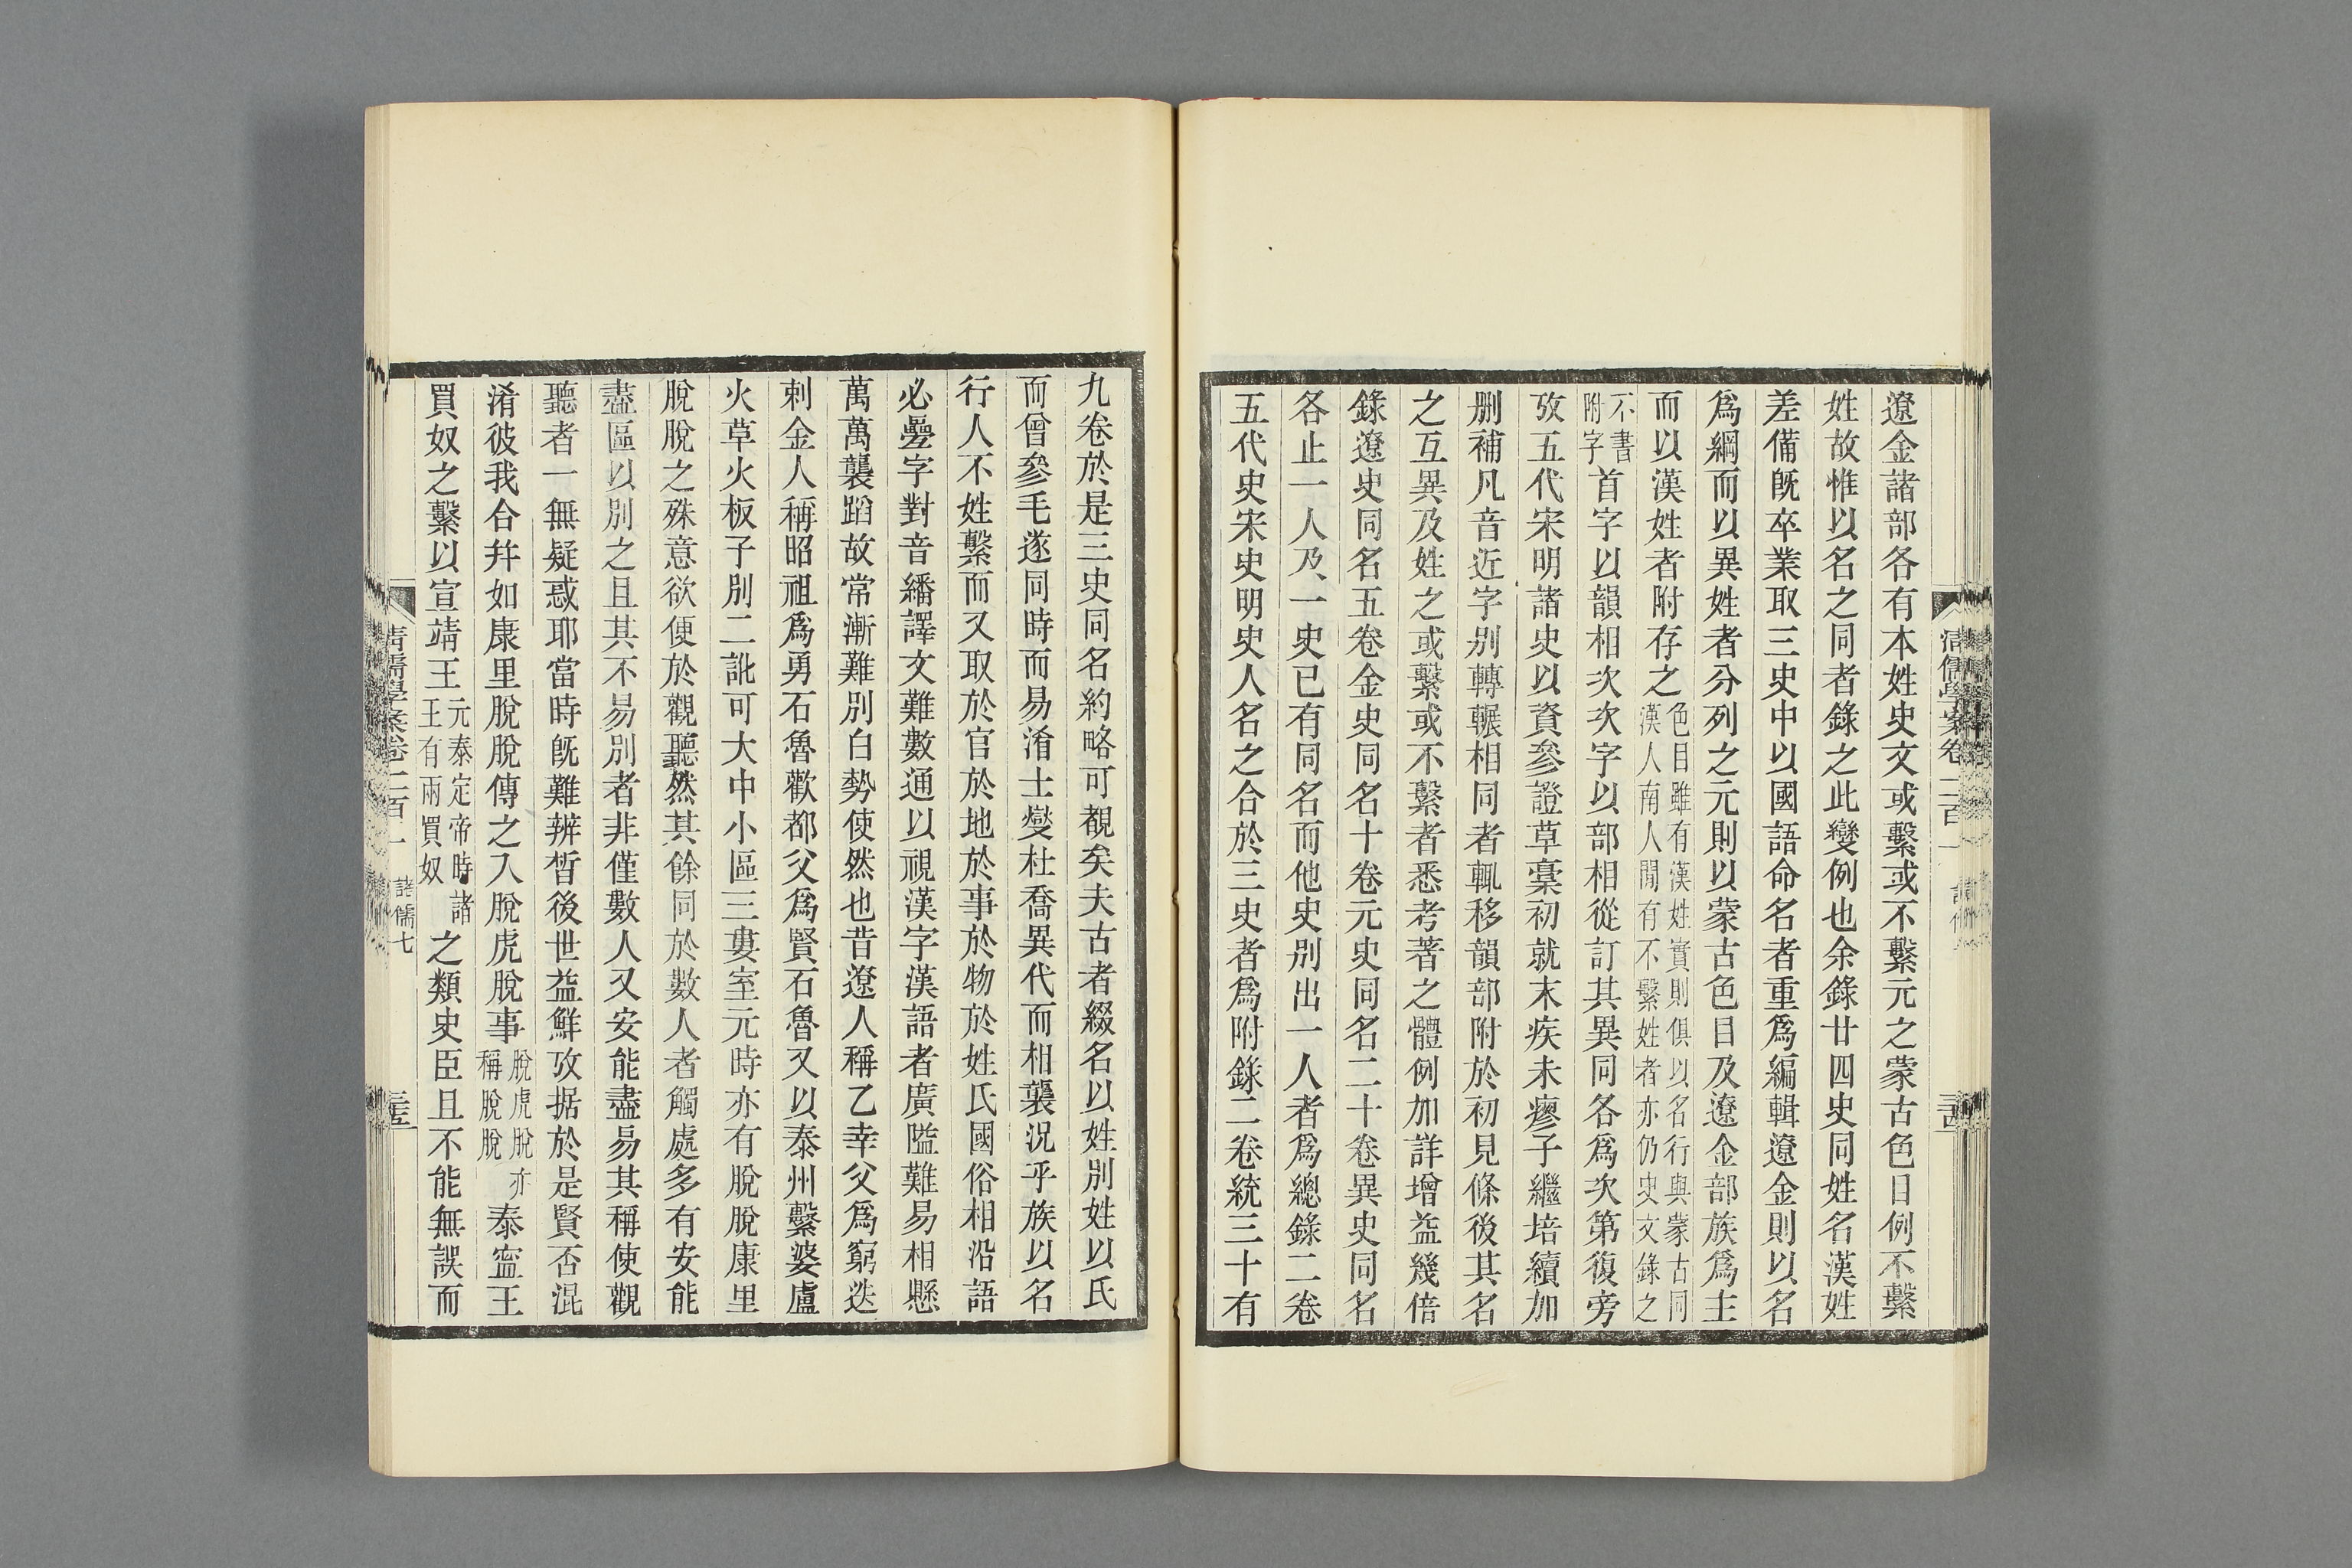 遼金諸部各有本姓史文或繫或不繫元之蒙古色目例不繫
姓故惟以名之同者錄之此變例也余錄廿四史同姓名漢姓
差備旣卒業取三史中以國語命名者重爲編輯遼金則以名
爲綱而以異姓者分列之元則以蒙古色目及遼金部族爲主
而以漢姓者附存之色目雖有漢姓實則俱以名行與蒙古同
漢人南人閒有不繫姓者亦仍史文錄之
不書
附字首字以韻相次次字以部相從訂其異同各爲次第復旁
攷五代宋明諸史以資參證草稾初就末疾未瘳子繼培續加
删補凡音近字別轉輾相同者輒移韻部附於初見條後其名
之互異及姓之或繫或不繫者悉考著之體例加詳增益幾倍
錄遼史同名五卷金史同名十卷元史同名二十卷異史同名
各止一人及一史已有同名而他史別出一人者爲總錄二卷
五代史宋史明史人名之合於三史者爲附錄二卷統三十有
九卷於是三史同名約略可覩矣夫古者綴名以姓別姓以氏
而曾參毛遂同時而易淆士燮杜喬異代而相襲況乎族以名
行人不姓繫而又取於官於地於事於物於姓氏國俗相沿語
必曡字對音繙譯文難數通以視漢字漢語者廣隘難易相懸
萬萬襲蹈故常漸難別白勢使然也昔遼人稱乙幸父爲窮迭
剌金人稱昭祖爲勇石魯歡都父爲賢石魯又以泰州繫婆盧
火草火板子別二訛可大中小區三婁室元時亦有脫脫康里
脫脫之殊意欲便於觀聽然其餘同於數人者觸處多有安能
盡區以別之且其不易別者非僅數人又安能盡易其稱使觀
聽者一無疑惑耶當時旣難辨晳後世益鮮攷据於是賢否混
淆彼我合幷如康里脫脫傳之入脫虎脫事脫虎脫亦
稱脫脫泰寍王
買奴之繫以宣靖王元泰定帝時諸
王有兩買奴之類史臣且不能無誤而
清儒學案卷二百一 諸儒七